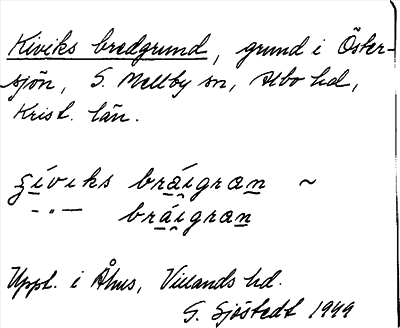 Kiviks bredgrund, grund i Öster-
sjön, S. Mellby sn, Albo hd,
Krist. län.
ʒíviks bráigran ~
-"- bráigran
Uppt. i Åhus, Villands hd.
G. Sjöstedt 1949